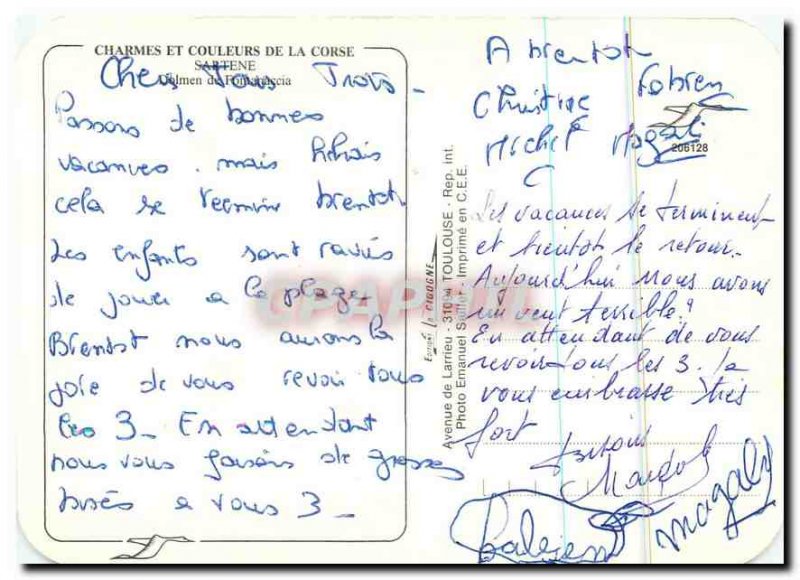 CHARMES ET COULEURS DE LA CORSE
SARTENE
Dolmen de Fontanaccia
Chers Tous Trois -
Passons de bonnes
vacances. mais hélas
cela se termine bientot
Les enfants sont ravies
de jouer a la plage
Bientot nous aurons la
joie de vous revoir tous
les 3 - En attendant
nous vous faisons de grosses
bises a vous 3 -
Editions La CIGOGNE
Avenue de Larrieu - 31094 TOULOUSE - Rep. int.
Photo Emanuel Saillet Imprimé en C.E.E.
A bientot
Fabien
Christine
Michel Magali
206128
Les vacances se terminent
et bientot le retour.
Aujourd'hui nous avons
un vent terrible.
En attendant de vous
revoir tous les 3. Je
vous embrasse très
fort
Fabien
magaly
CPARAMA